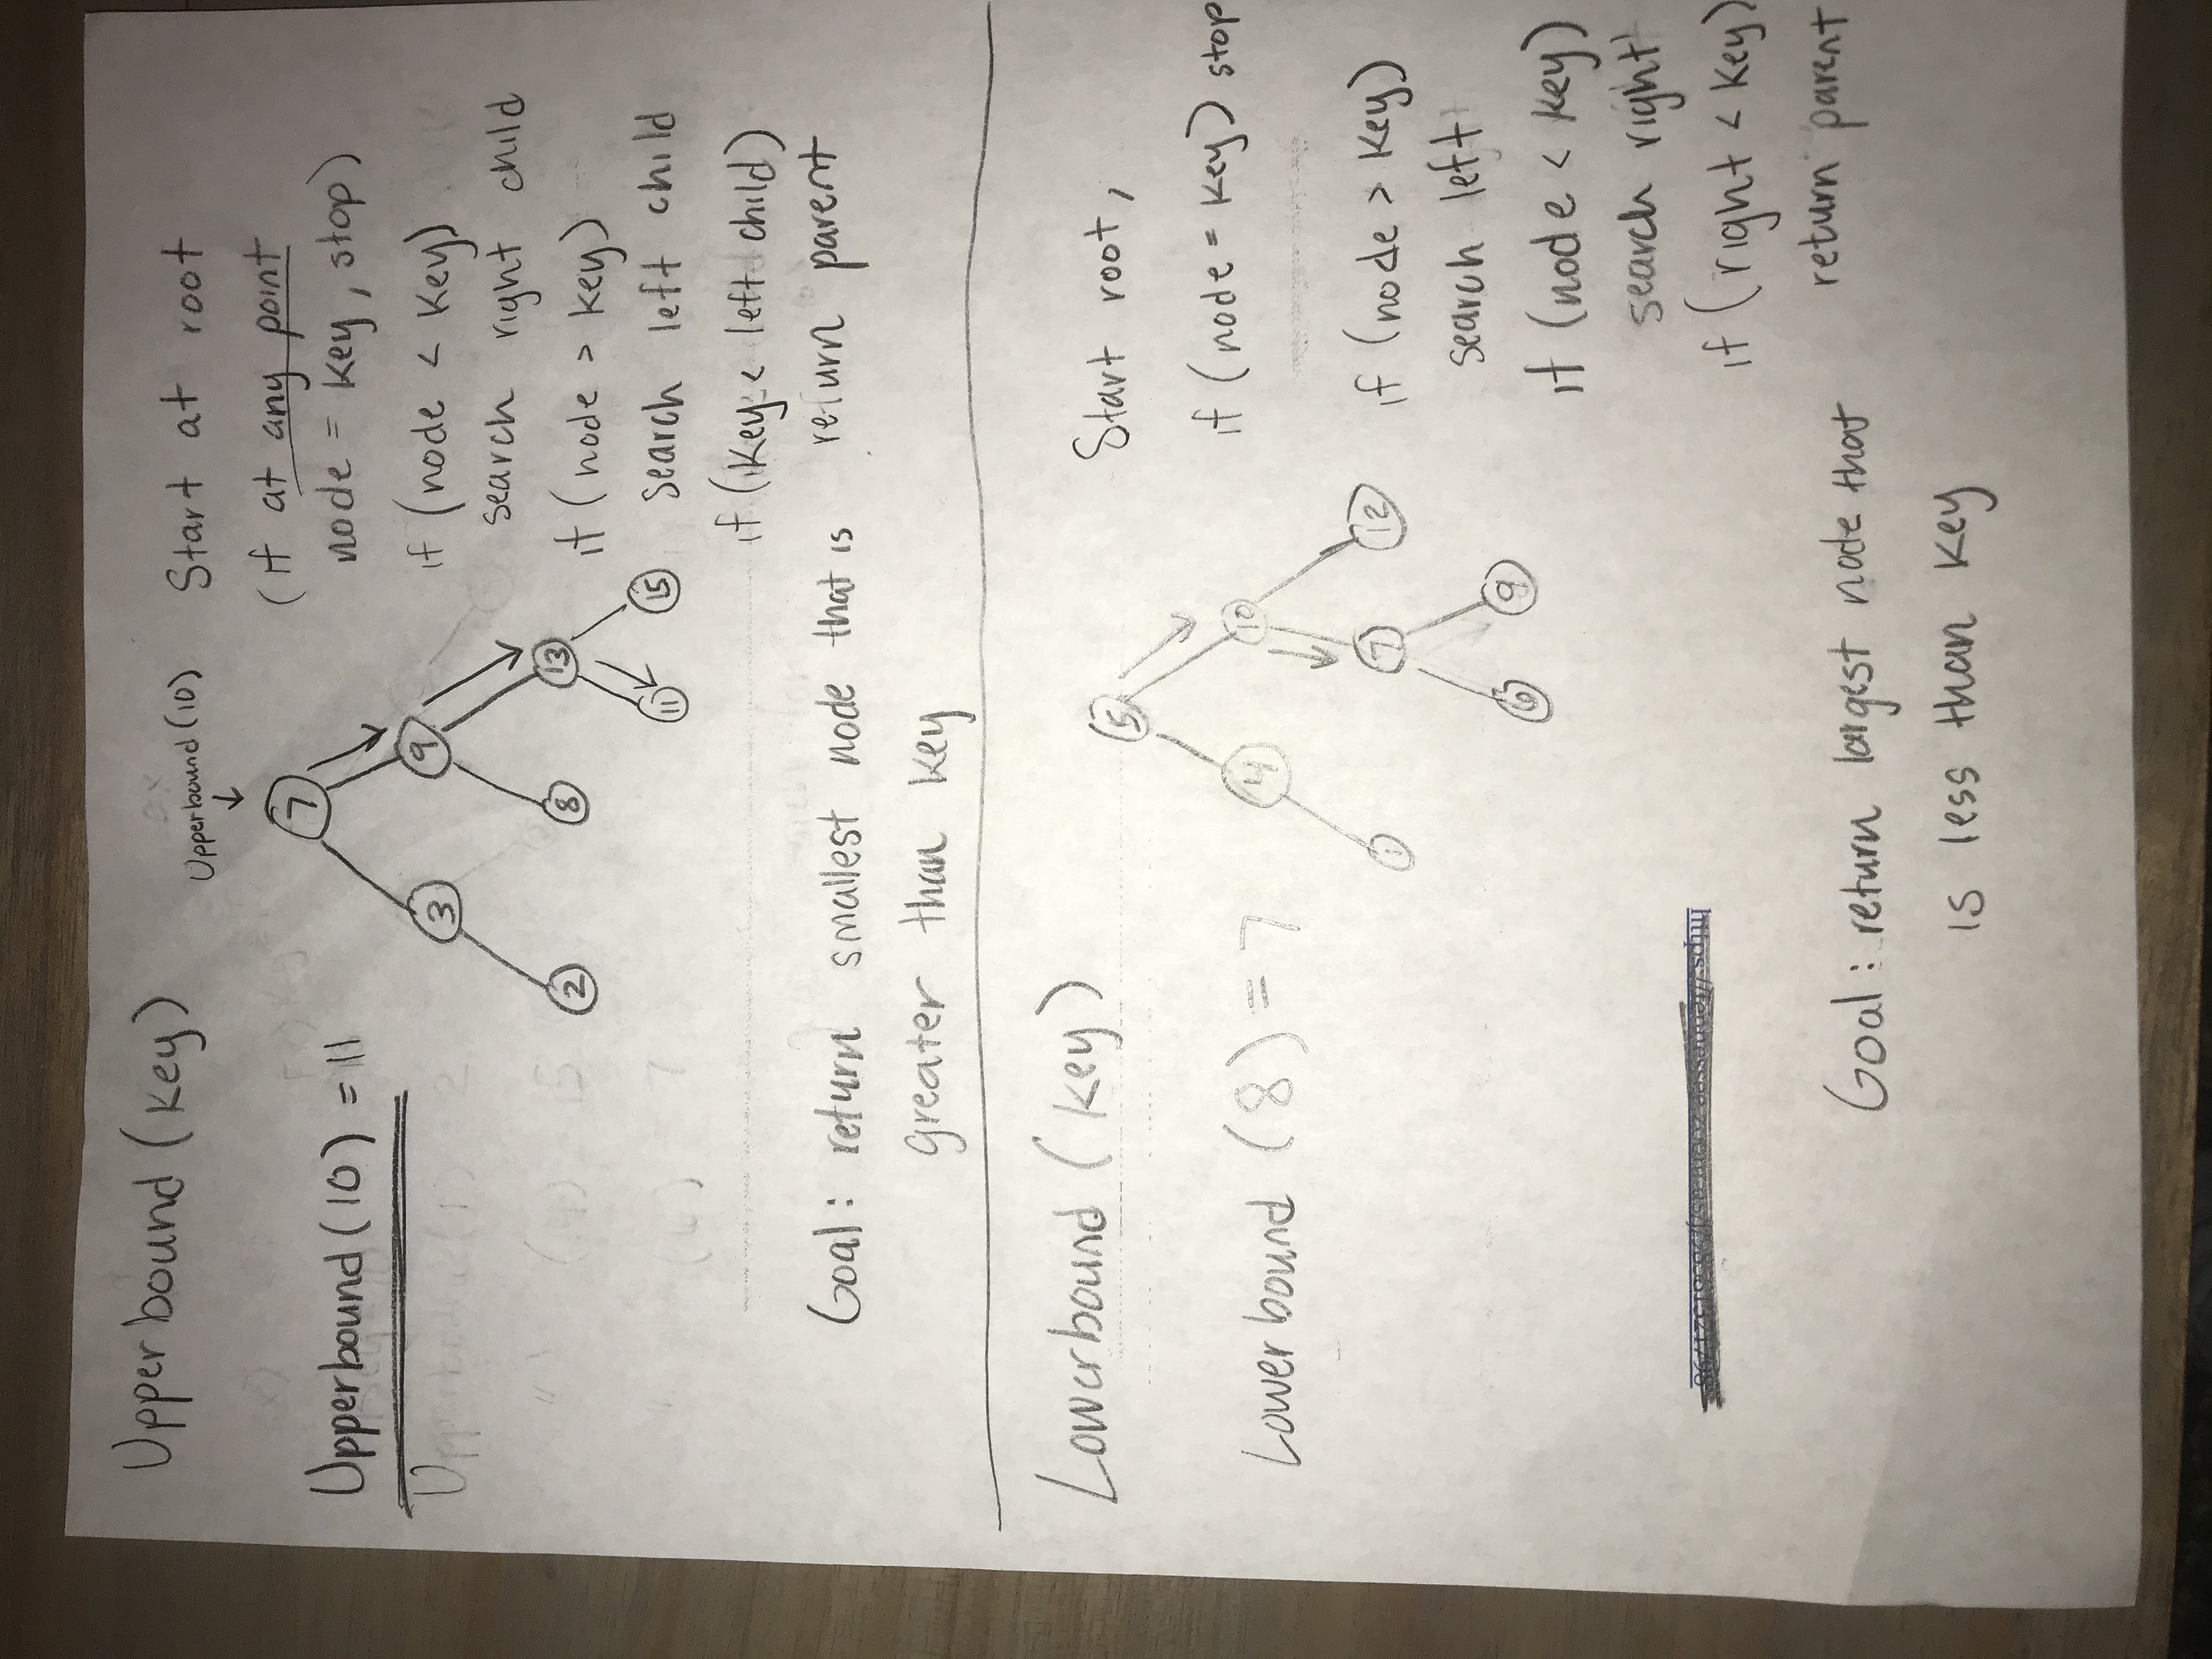 Upperbound (key)
Upperbound (10)
Upperbound (10) = 11
7
3
9
2
8
13
11
15
Start at root
(if at any point
node = key, stop)
if (node < key)
search right child
if (node > key)
search left child
if (key < left child)
return parent
Goal: return smallest node that is
greater than key
Lowerbound (key)
Lowerbound (8) = 7
5
4
10
1
7
12
6
9
Start root,
if (node = key) stop
if (node > key)
search left
if (node < key)
search right
if (right < key)
return parent
Goal: return largest node that
is less than key